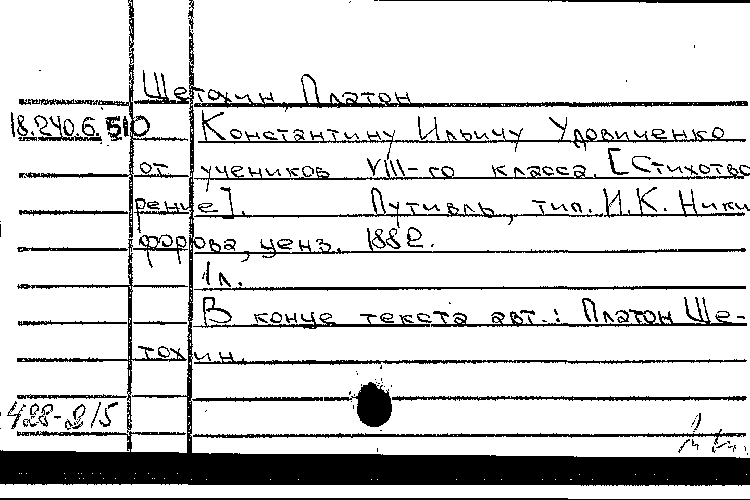 Щетохин, Платон
18.240.6.510 Константину Ильичу Удовиченко
от учеников VIII-го класса. [Стихотво
рение]. Путивль, тип. И.К. Ники
форова, ценз. 1882.
1л.
В конце текста авт.: Платон Ще-
тохин.
428-215